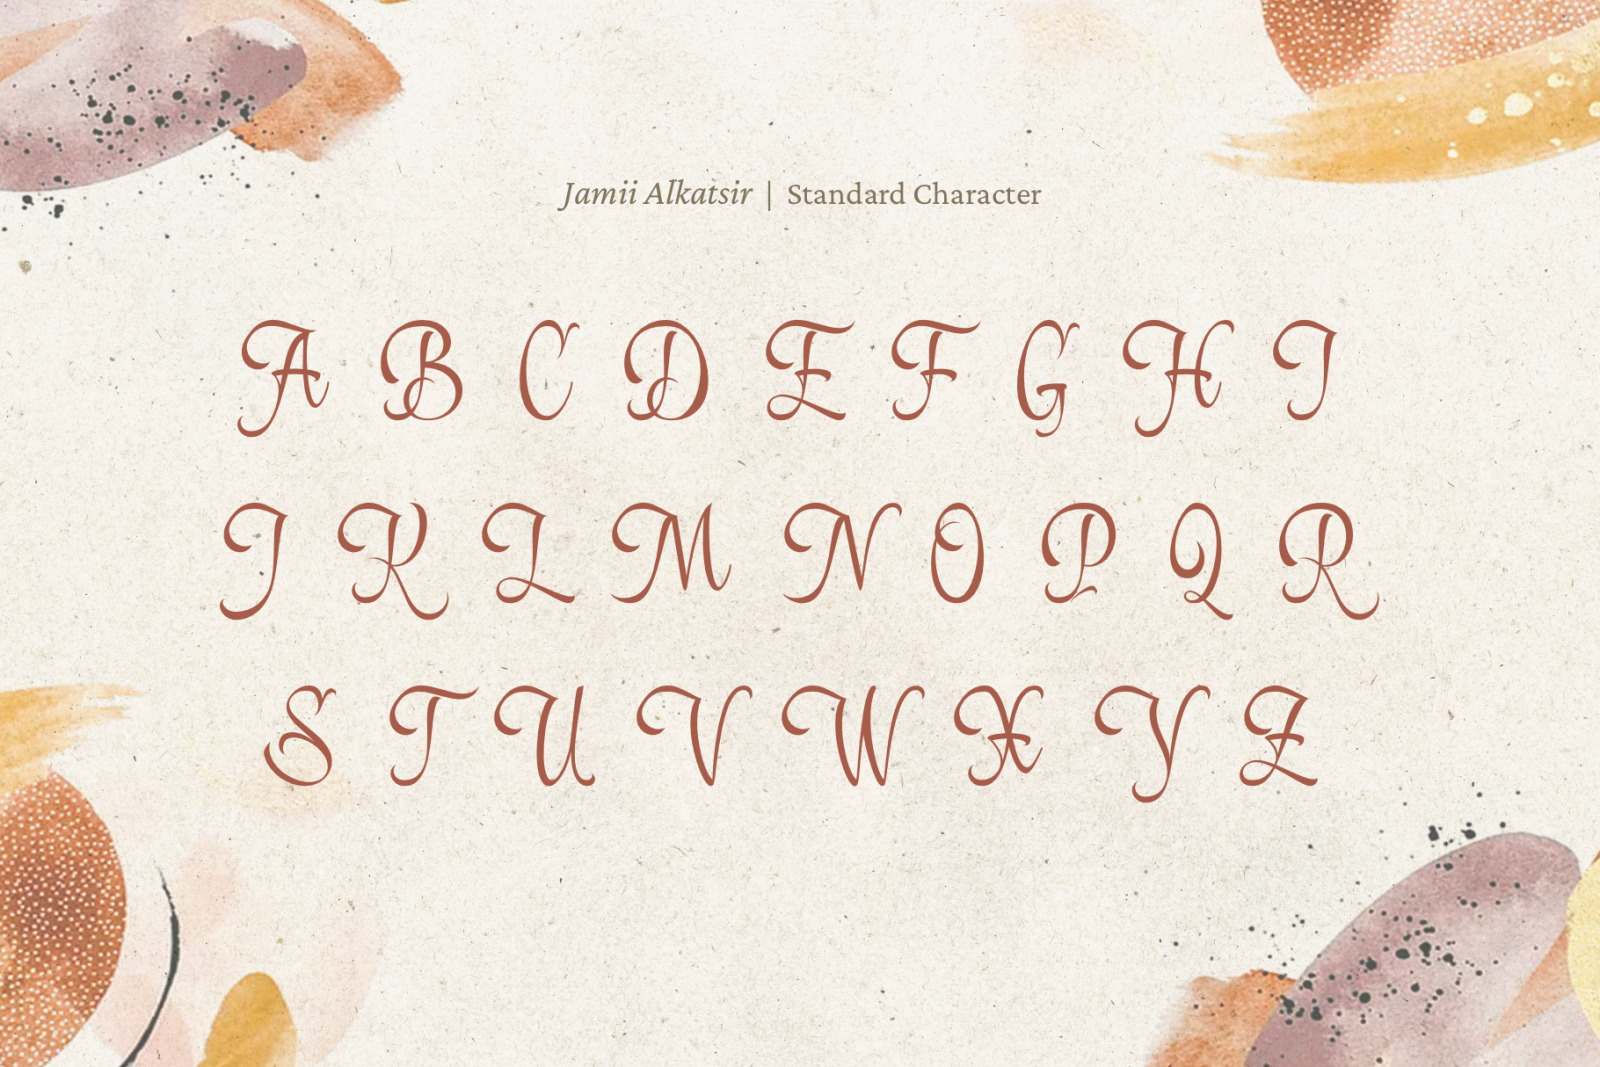 Jamii Alkatsir | Standard Character
A B C D E F G H I
J K L M N O P Q R
S T U V W X Y Z